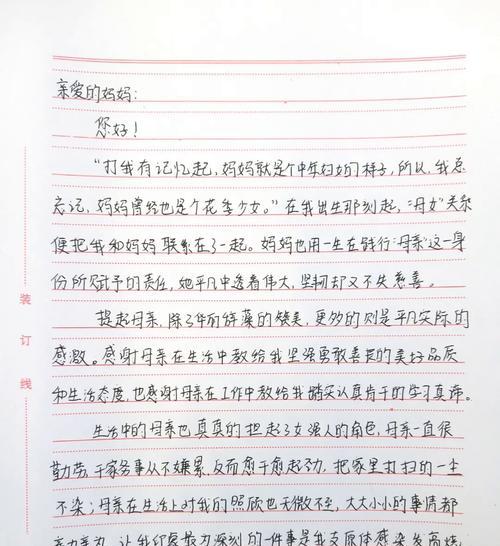 亲爱的妈妈:
您好!
"打我有记忆起,妈妈就是个中年妇女的样子,所以,我总
忘记,妈妈曾经也是个花季少女。"在我出生那刻起,"母女"关系
便把我和妈妈联系在了一起。妈妈也用一生在践行"母亲"这一身
份所赋予的责任,她平凡中透着伟大,坚韧却又不失慈善。
提起母亲,除了华丽辞藻的赞美,更多的则是平凡实际的
感激。感谢母亲在生活中教给我坚强勇敢善良的美好品质
和生活态度,也感谢母亲在工作中教给我踏实认真肯干的学习真谛。
生活中的母亲也真真的担起了女强人的角色,母亲一直很
勤劳,干家务事从不嫌累,反而愈干愈起劲,把家里打扫的一尘
不染;母亲在生活上对我的照顾也无微不至,大大小小的事情都
让我印象最为深刻的一件事是我支原体感染发高烧
装
订
线